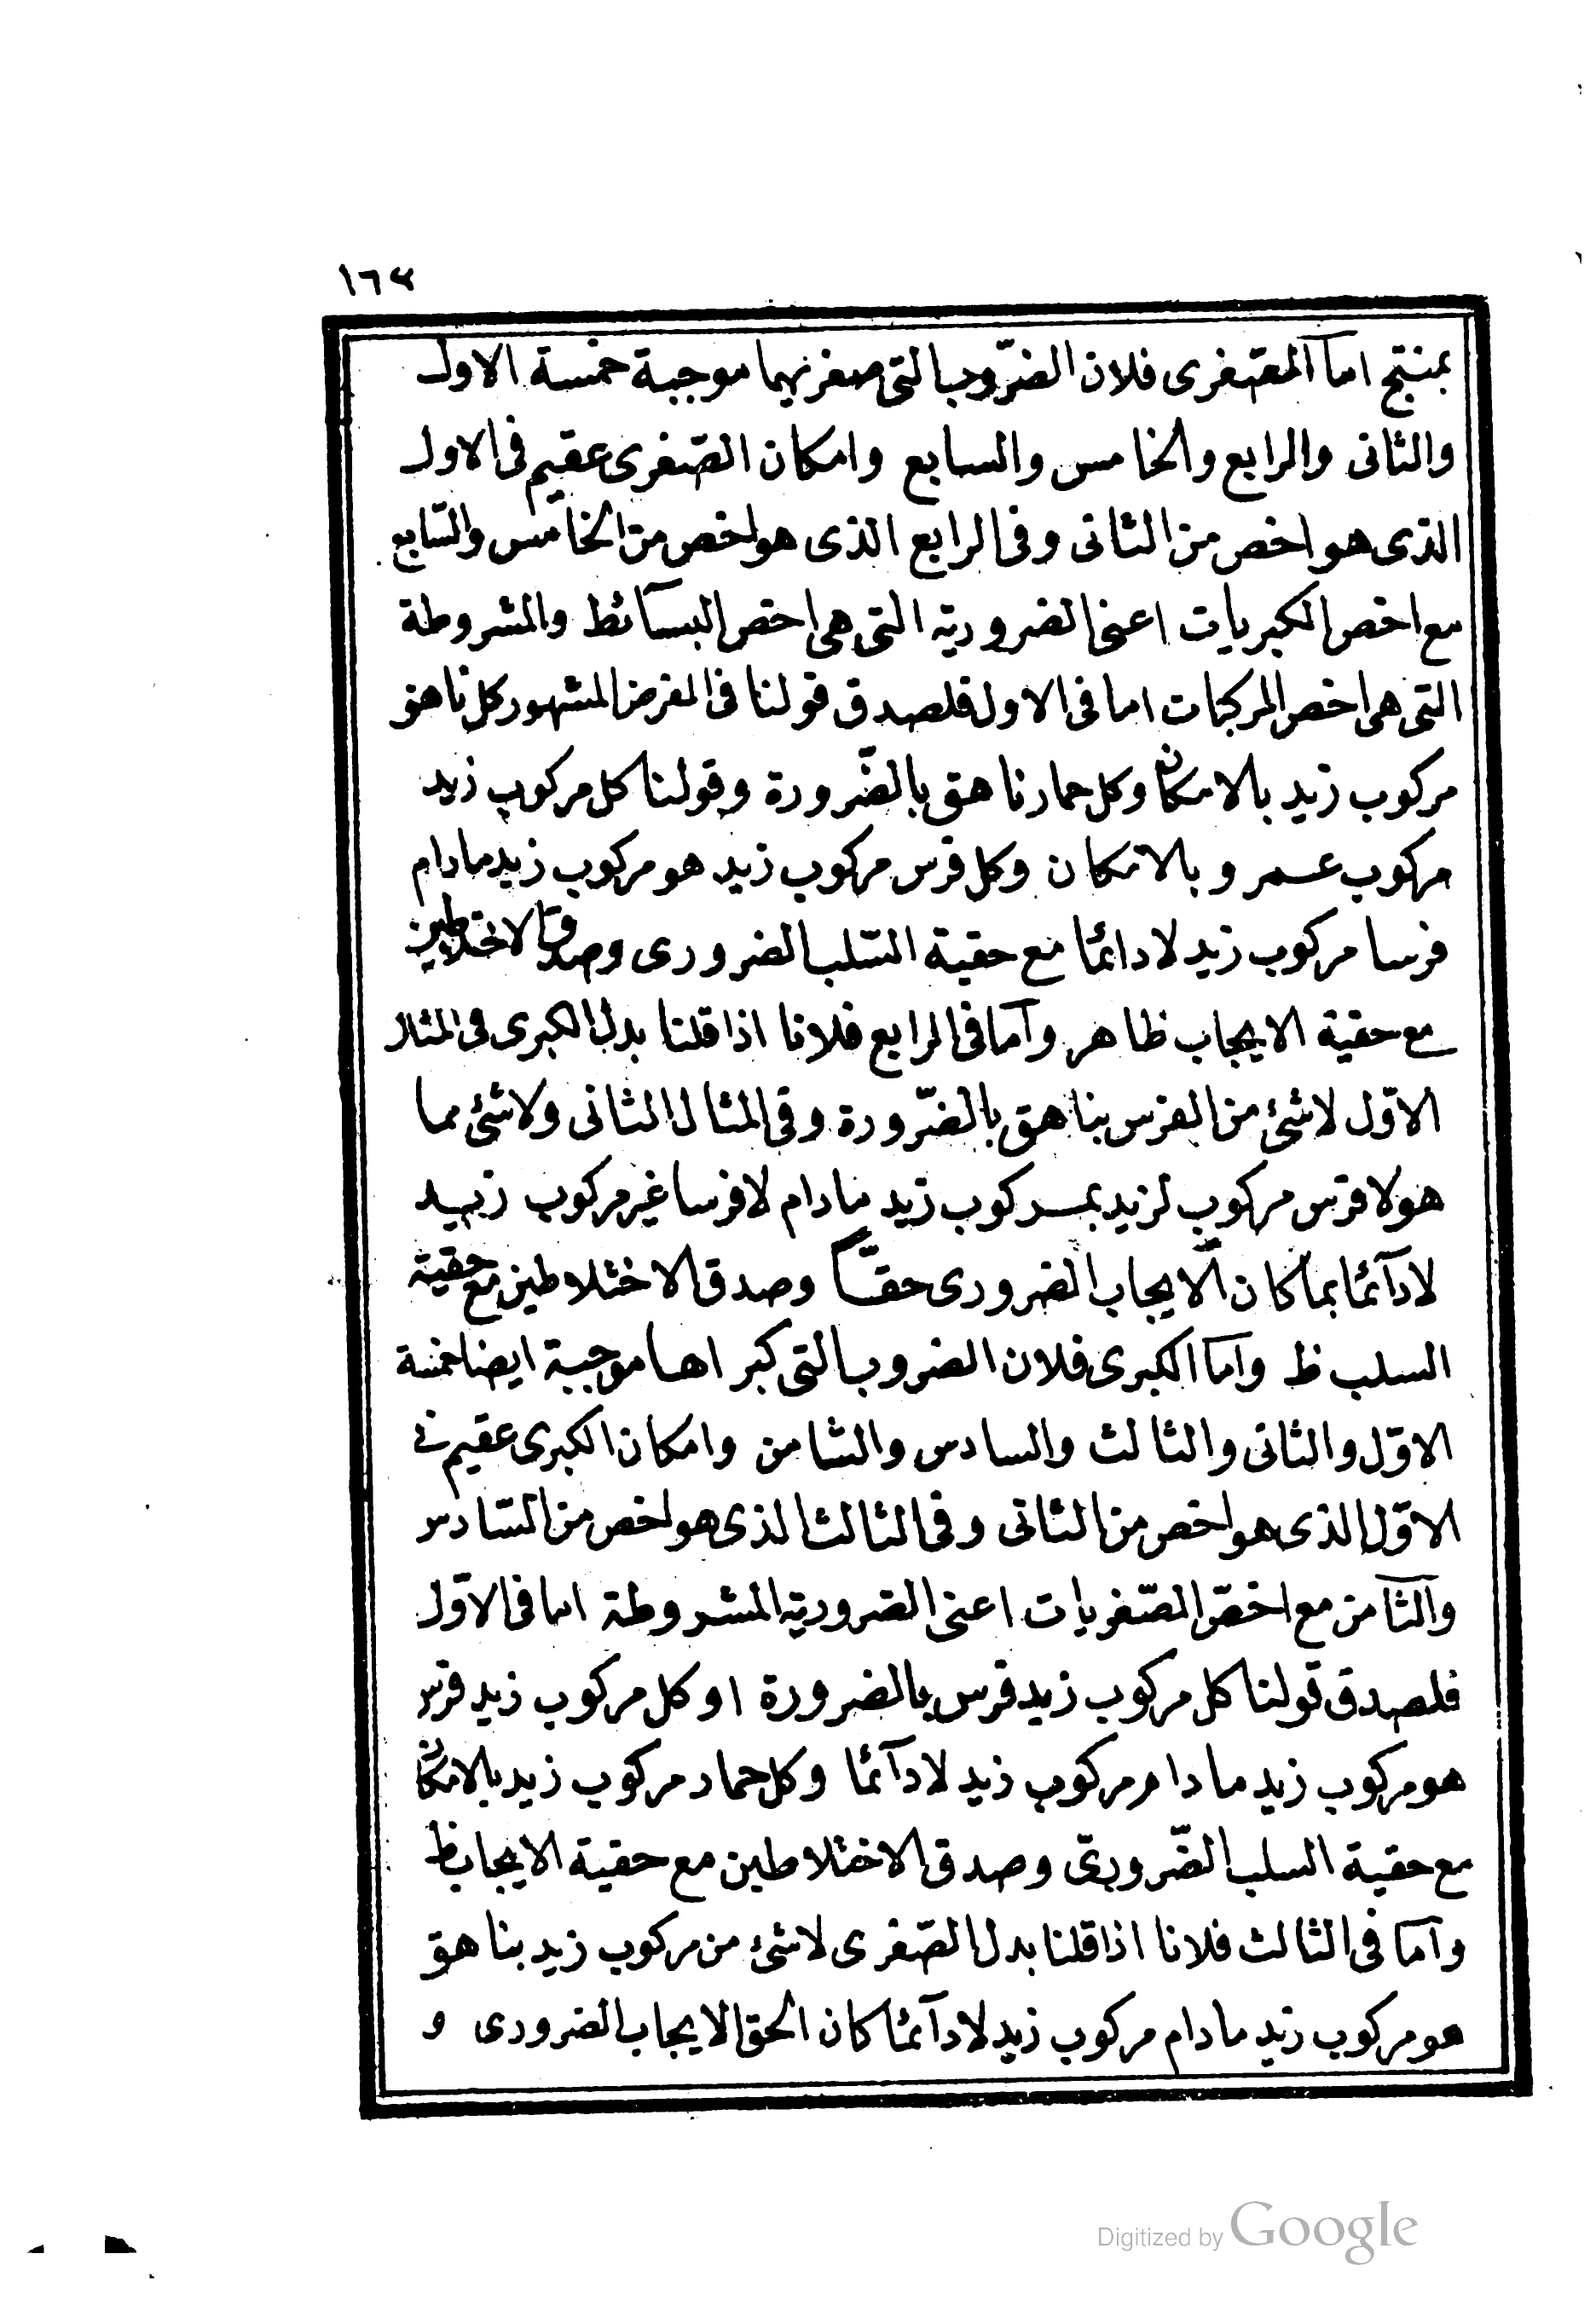 ١٦٣
بمنتج اما الصّغرى فلان الضرّوب التى صغريهما موجبة خمسة الاول
والثانى والرابع والخامس والسابع وامكان الصّغرى عقيم فى الاول
الذى هو اخص من الثانى وفى الرابع الذى هو اخص من الخامس والسّابع
مع اخص الكبريات اعنى الضروريّة التى هى اخص البسآئط والمشروطة
التى هى اخص المركبات اما فى الاول فلصدق قولنا فى الفرض المشهور كل ناهق
مركوب زيد بالامكان وكل حمار ناهق بالضّرورة وقولنا كل مركوب زيد
مركوب عمرو بالامكان وكل فرس مركوب زيد هو مركوب زيد مادام
فرسا مركوب زيد لا دائما مع حقية السّلب الضرورى وصدق الاختلاطين
مع حقية الايجاب ظاهر وآما فى الرابع فلانا اذا قلنا بدل الكبرى فى المثال
الاوّل لاشئ من الفرس بناهق بالضّرورة وفى المثال الثانى ولاشئ مما
هو لا فرس مركوب لزيد بمركوب زيد مادام لا فرسا غير مركوب زيد
لادآئما بما كان الايجاب الضرورى حقّا وصدق الاختلاطين مع حقية
السلب ظ وآما الكبرى فلان الضروب التى كبراها موجبة ايضا خمسة
الاوّل والثانى والثالث والسادس والثامن وامكان الكبرى عقيم فى
الاوّل الذى هو اخص من الثانى وفى الثالث الذى هو اخص من السّادس
والثامن مع اخصّ الصّغريات اعنى الضروريّة المشروطة اما فى الاوّل
فلصدق قولنا كل مركوب زيد فرس بالضرورة او كل مركوب زيد فرس
هو مركوب زيد مادام مركوب زيد لادآئما وكل حمار مركوب زيد بالامكان
مع حقية السلب الضّرورىّ وصدق الاختلاطين مع حقية الايجاب ظ
وآما فى الثالث فلانا اذا قلنا بدل الصّغرى لاشئ من مركوب زيد بناهق
هو مركوب زيد مادام مركوب زيد لادآئما كان الحق الايجاب الضرورى و
Digitized by Google